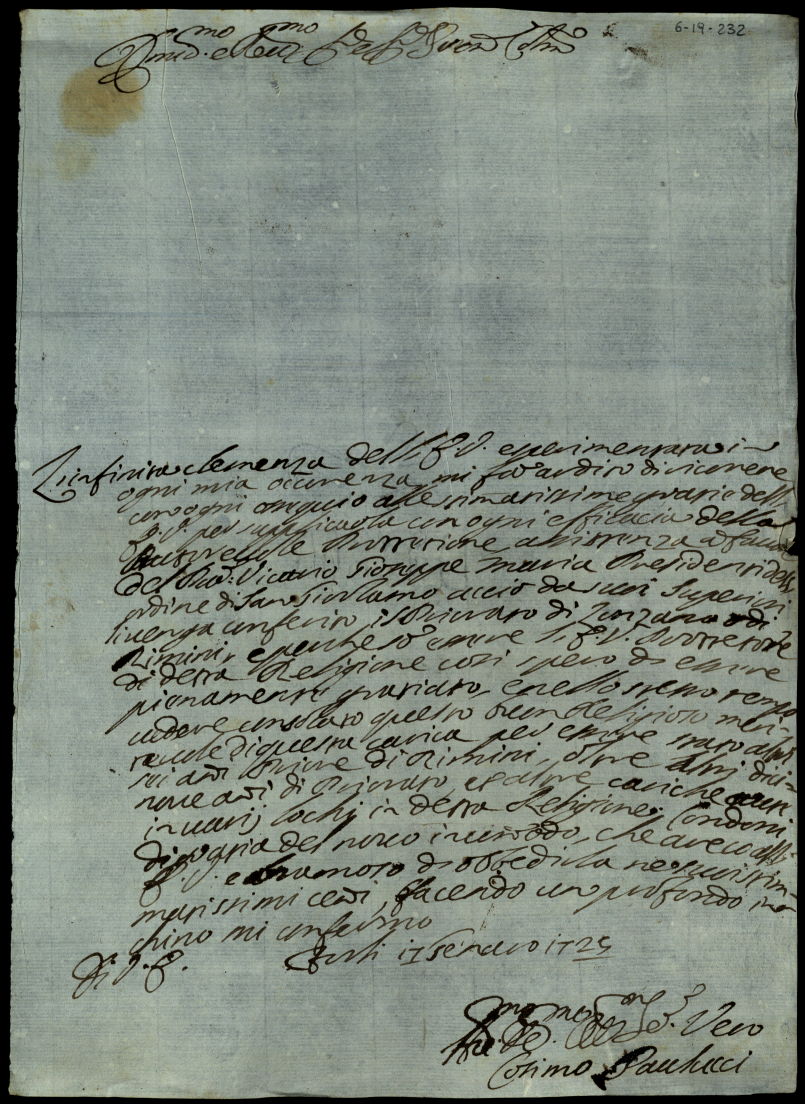 6-19-232
Em̃o. e Rev̅mo Sig.r Sig.r Pron̄e Col̅mo
L'infinita clemenza dell' E. V. esperimentata in
ogni mia ocurenza mi fa ardito di ricorrere
con ogni ossequio alle stimatissime grazie dell'
E. V. per supplicarla con ogni efficacia della
autorevole Protezione assistenza a favore
del Pad: Vicario Gioseppe Maria Presidenti dell'
ordine di San Girolamo acciò da suoi Superiori
venga conferito il Priorato di o di
Rimini, e perche so essere l'E. V. Protettore
di detta Religione così spero di essere
pienamente graziato, e nello stesso tempo
vedere consolato questo buon Religioso meri-
tevole di questa carica per essere stato
sei ani Priore di Rimini, oltre altri dici-
nove ani di Priorato, et altre cariche
in varij lochi in detta Religione: Condoni
di grazia del novo incomodo, che areco all'
E. V. e bramoso di obbedirla ne suoi sti-
matissimi ceni, facendo un profondo in-
chino mi confermo
Di V. E. Forlì 17 Genaro 1725
Vero
Cosimo Paulucci